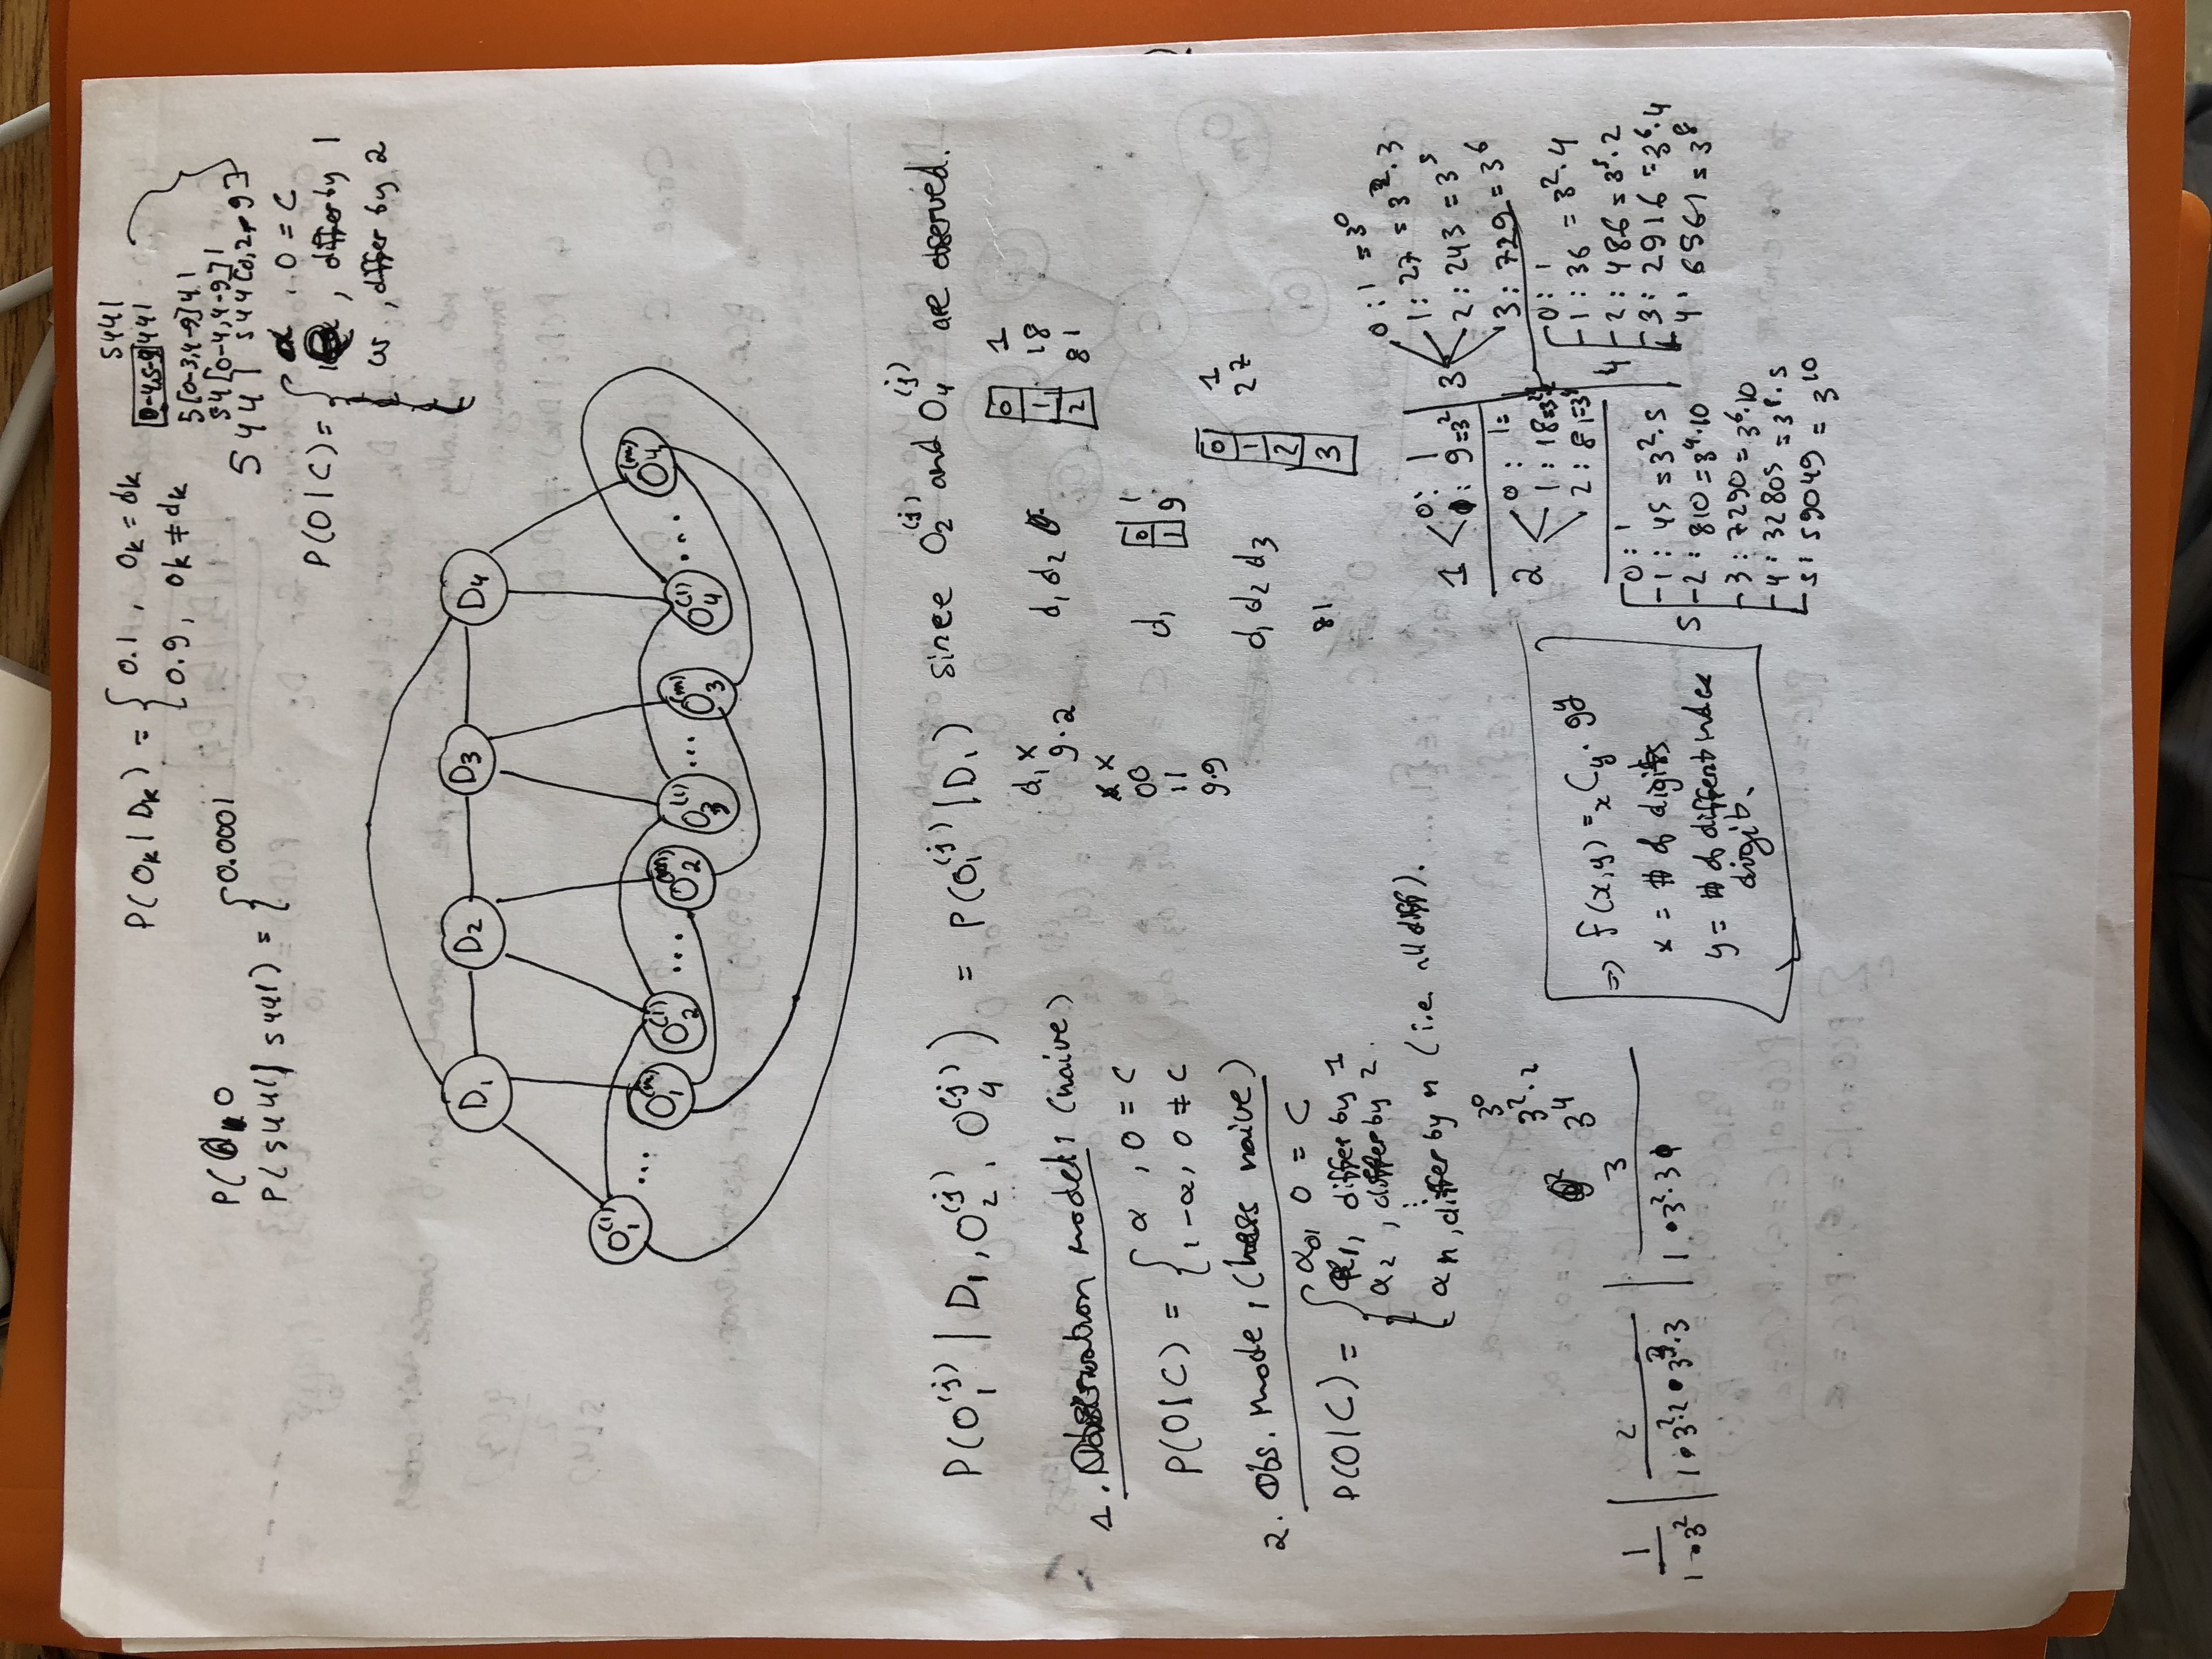 P(Ok | Dk) = { 0.1, Ok = dk
0.9, Ok ≠ dk
5441
[0-4,5-9]441
5[0-3,4-9]41
54[0-4,4-9]1
5441 544[0,2-9]
P( 0
P(5441 | 5441) = { 0.0001
P(O|C) = { α, O = C
, differ by 1
, differ by 2
D1 D2 D3 D4
O1^(1) ... O1^(m) O2^(1) ... O2^(m) O3^(1) ... O3^(m) O4^(1) ... O4^(m)
P(O1^(j) | D1, O2^(j), O4^(j)) = P(O1^(j) | D1) since O2^(j) and O4^(j) are observed.
1. Observation model: (naive)
P(O|C) = { α, O = C
1-α, O ≠ C
2. Obs. mode, (less naive)
P(O|C) = { α0, O = C
α1, differ by 1
α2, differ by 2.
⋮
αn, differ by n (i.e. all diff).
d1 x
9·2
x x
00
11
9.9
d1 d2
0 1
1 18
2 81
d1
0 1
1 9
d1 d2 d3
0 1
1 27
2
3
81
3^0
3^2·2
3^4
1
1·3^2
2
1·3^2·2·3^3·3
3
1·3^2·3
⇒ f(x,y) = xCy · 9^y
x = # of digits
y = # of different index
digits.
1 0: 1
1: 9=3^2
2 0: 1=
1: 18=3^2·2
2: 81=3^4
3 0: 1 = 3^0
1: 27 = 3^2·3
2: 243 = 3^5
3: 729 = 3^6
4 0: 1
1: 36 = 3^2·4
2: 486 = 3^5·2
3: 2916 = 3^6·4
4: 6561 = 3^8
5 0: 1
1: 45 = 3^2·5
2: 810 = 3^4·10
3: 7290 = 3^6·10
4: 32805 = 3^8·5
5: 59049 = 3^10